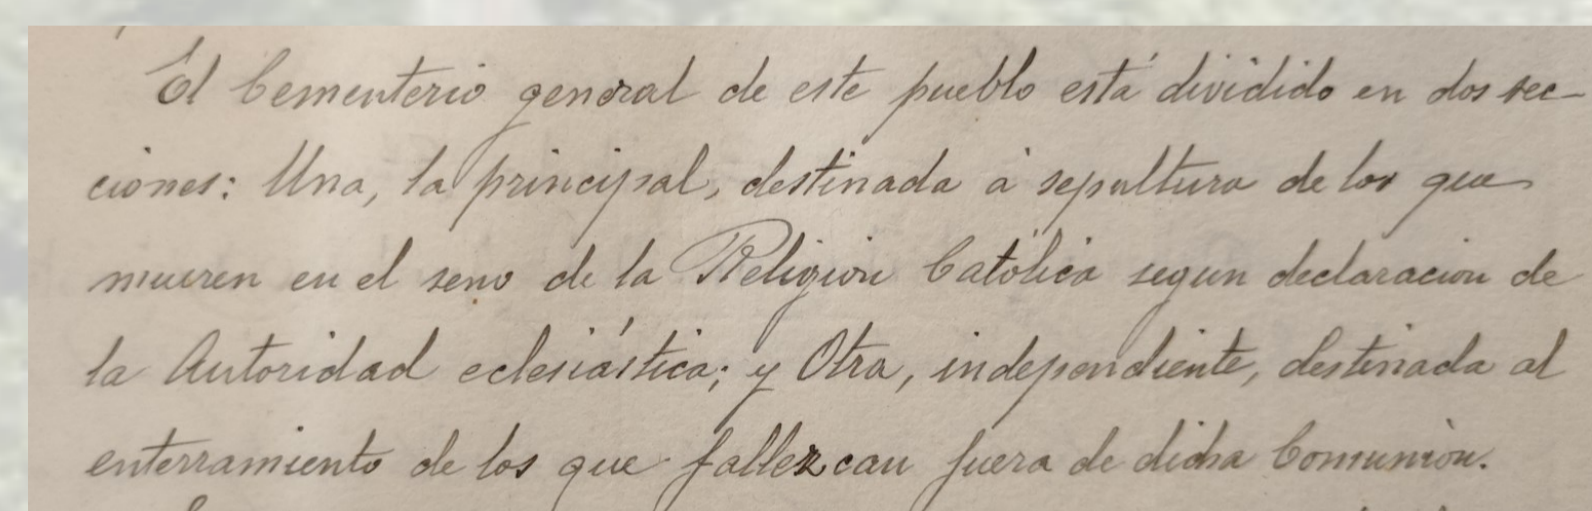 El Cementerio general de este pueblo está dividido en dos sec-
ciones: Una, la principal, destinada á sepultura de los que
mueren en el seno de la Religion Católica segun declaracion de
la Autoridad eclesiástica; y Otra, independiente, destinada al
enterramiento de los que fallezcan fuera de dicha Comunión.